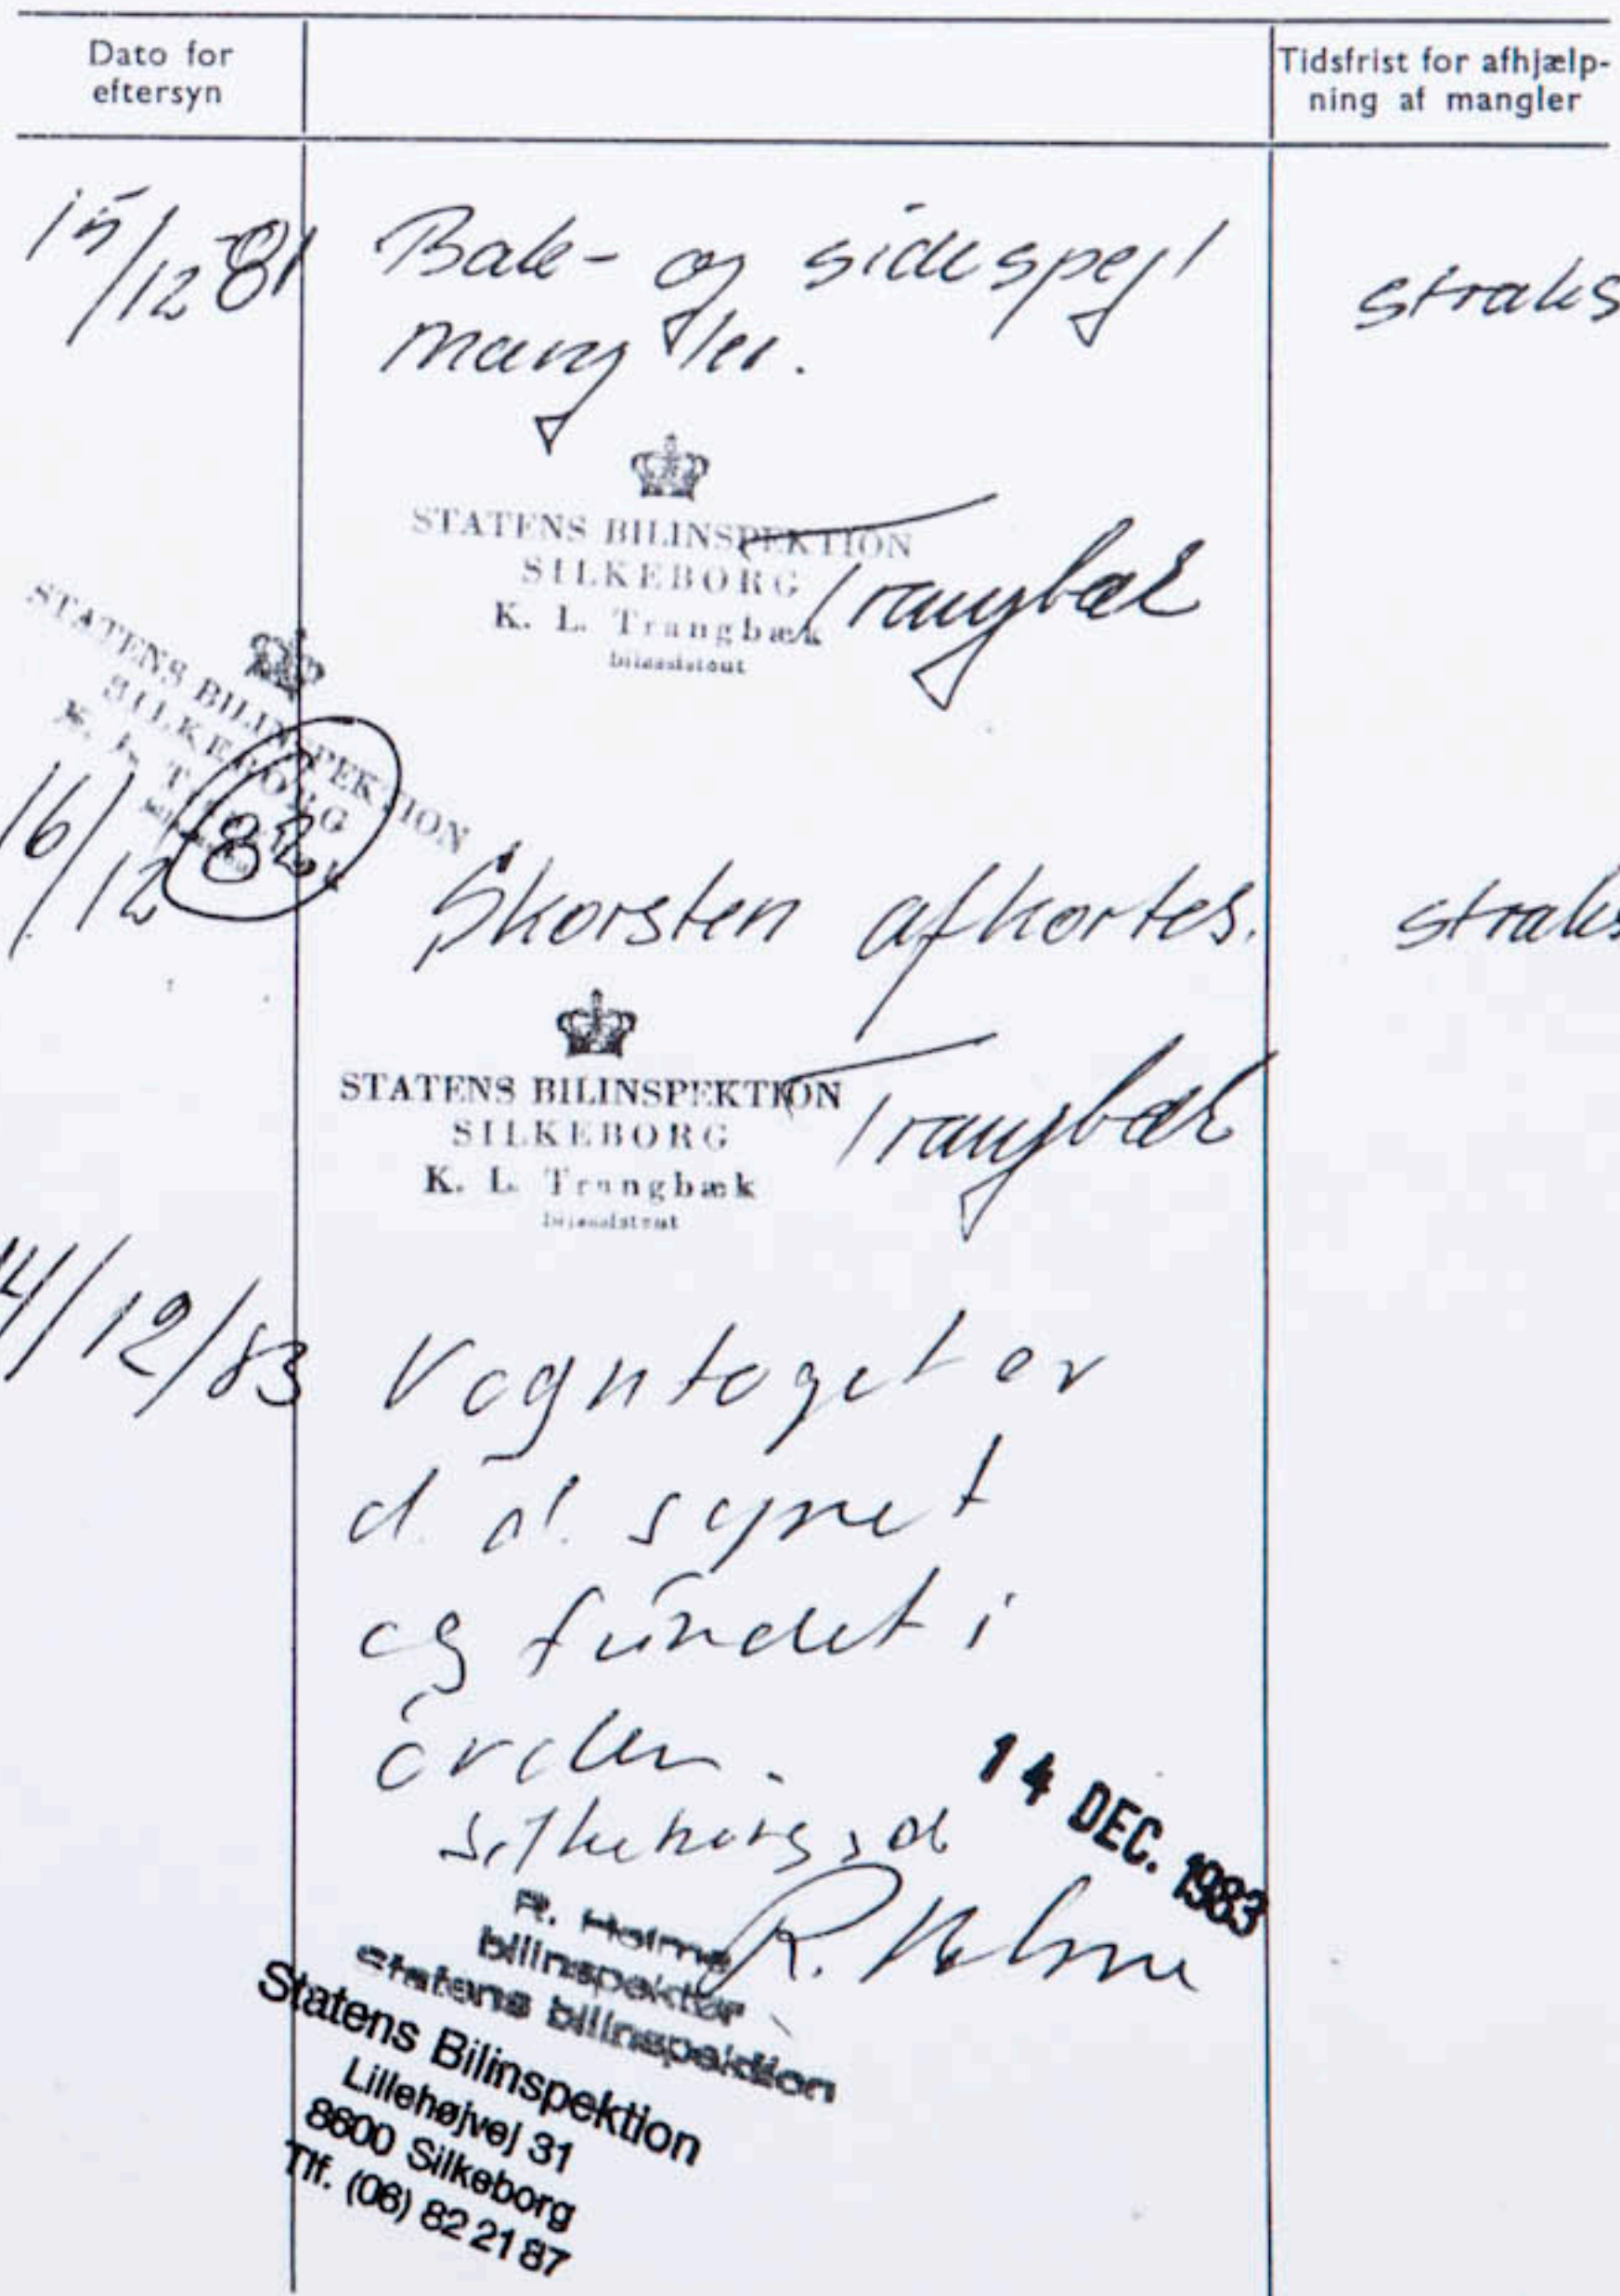 Dato for
eftersyn
Tidsfrist for afhjælp-
ning af mangler
15/12 81 Bak- og sidespejl straks
mangler.
STATENS BILINSPEKTION
SILKEBORG
K. L. Trangbæk
bilassistent
Trangbæk
STATENS BILINSPEKTION
SILKEBORG
16/12 82 Skorsten afkortes. straks
STATENS BILINSPEKTION
SILKEBORG
K. L. Trangbæk
bilassistent
Trangbæk
14/12/83 Vogntoget er
d.d. synet
og fundet i
orden.
Silkeborg, d
14 DEC. 1983
R. Holme
R. Holme
bilinspektør
statens bilinspektion
Statens Bilinspektion
Lillehøjvej 31
8600 Silkeborg
Tlf. (06) 82 21 87